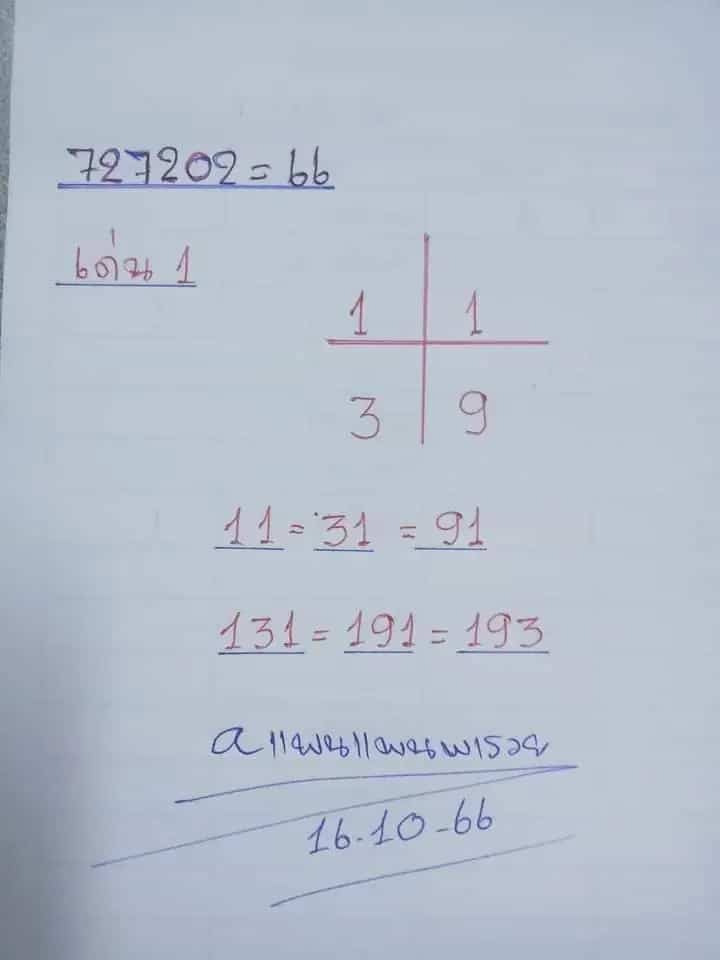 727202 = 66
เด่น 1
1 1
3 9
11 = 31 = 91
131 = 191 = 193
a แฟนแฟนพารวย
16.10-66